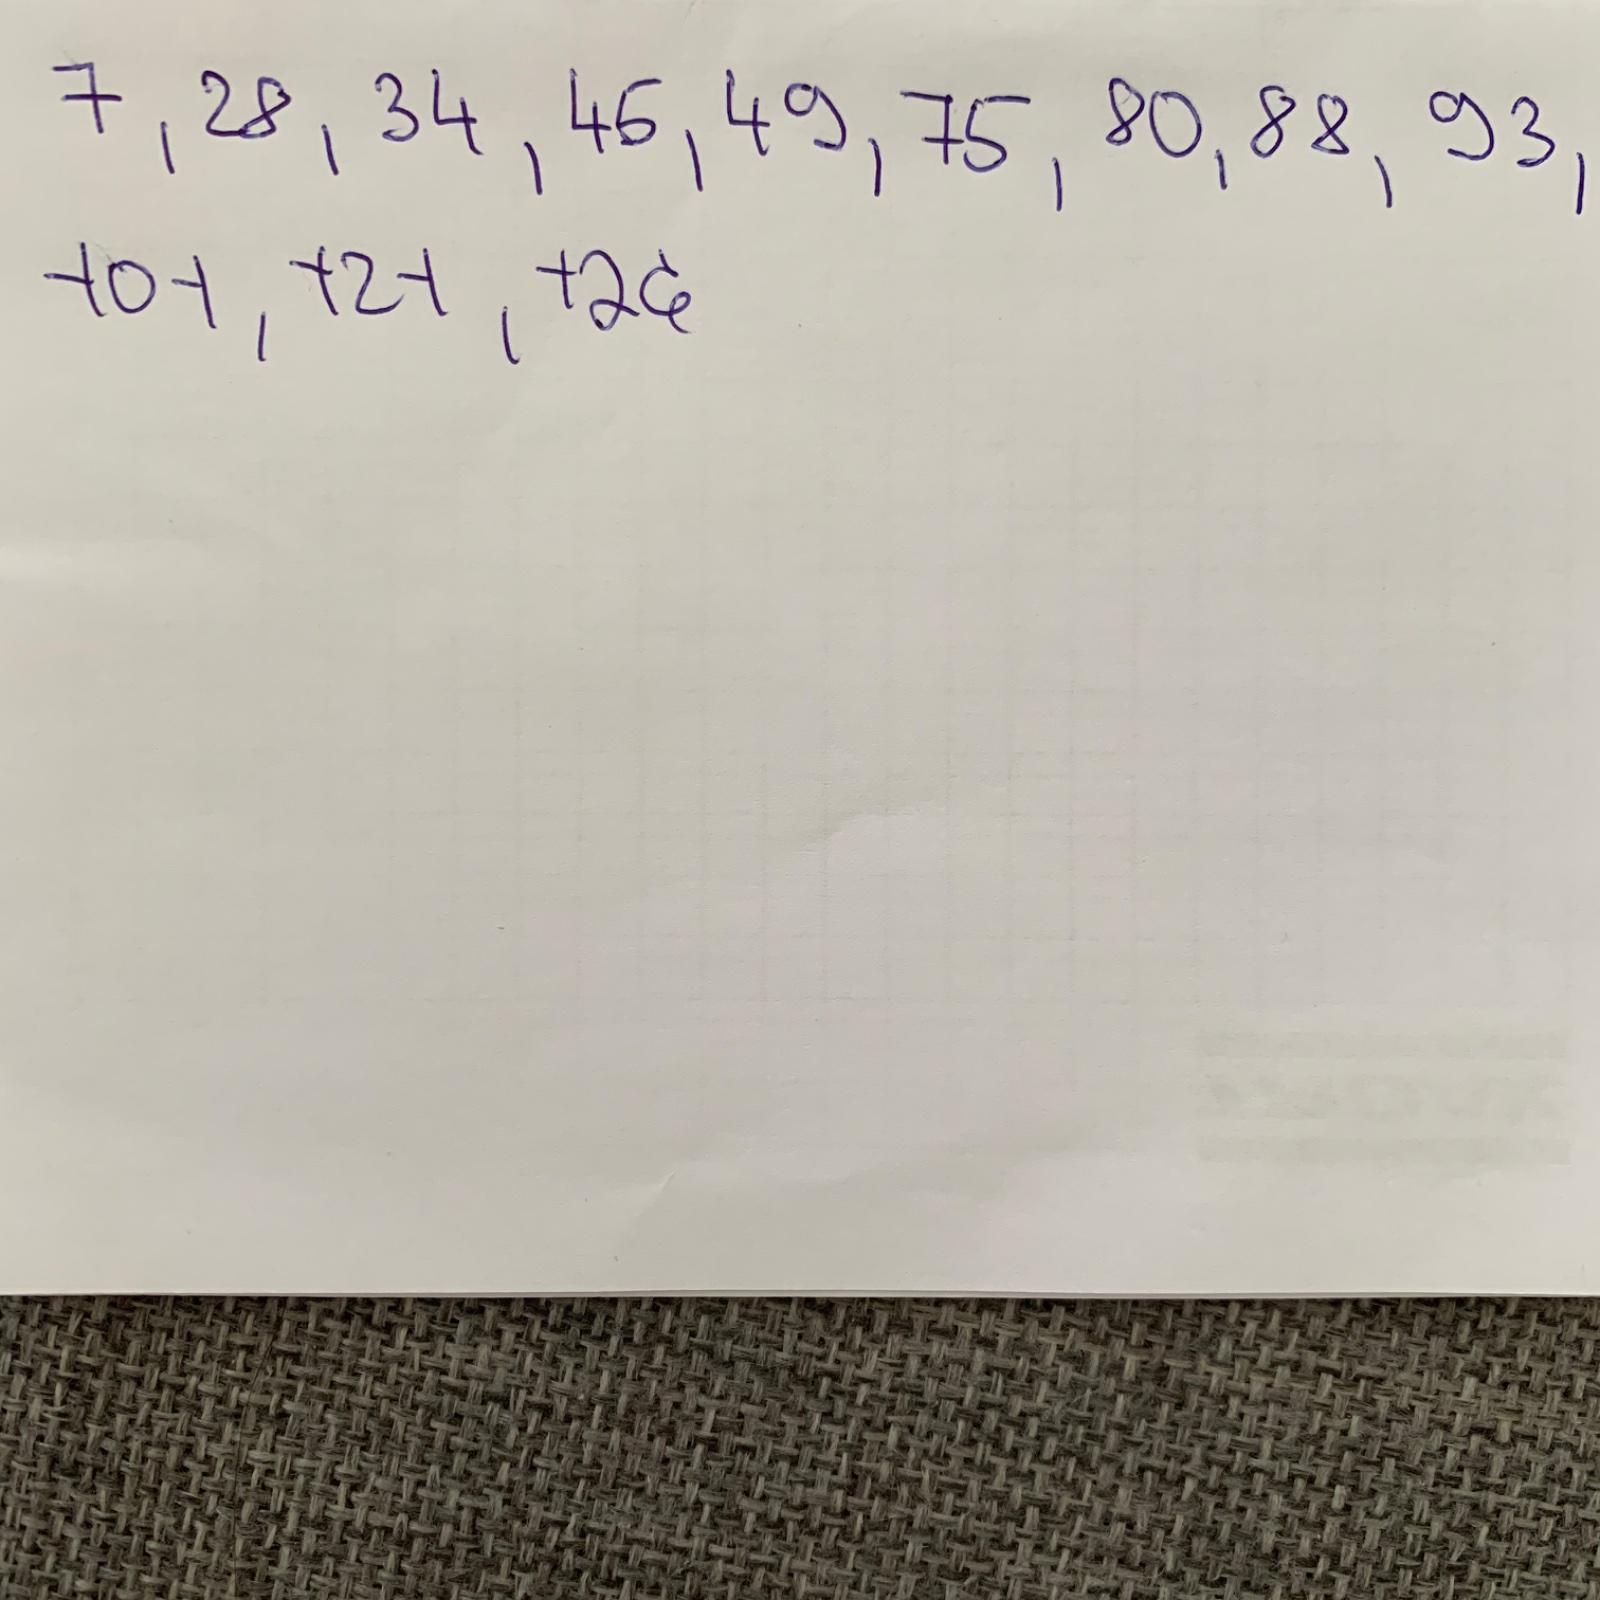 7, 28, 34, 45, 49, 75, 80, 88, 93,
101, 121, 126